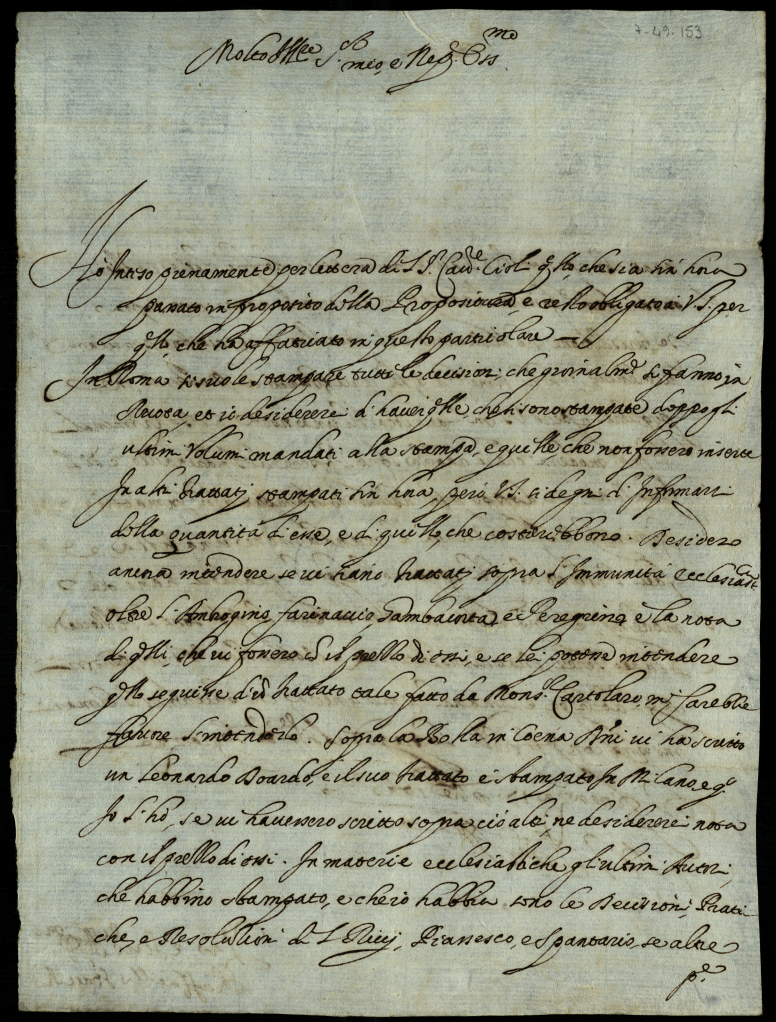 7-49-153
Molto Ill.re S.r mio, e
Ho inteso pienamente per lettera di S. S.r Cav.re Cioli q.llo che sia sin hora
passato in proposito della Propositura, e resto obligato a V.S. per
q.llo, che ha affatticato in questo particolare
In Roma si suole stampare tutte le decisioni, che giornalm.te si fanno in
Ruota, et io desidererei d'haver q.lle che si sono stampate doppo gli
ultimi Volumi mandati alla stampa, e quelle, che non fossero inserte
In altri trattati stampati sin hora, però V.S. si degni d'Informarsi
della quantità d'esse, e di quello, che costarebbono. Desidero
ancora intendere se vi hanno trattati sopra l'Immunità
oltre l'Ambrogino, farinaccio, Gambacurta, et Peregrino, e la nota
di q.lli, che vi fossero con il prezzo di essi, e se lei potesse intendere
q.llo seguisse d'un trattato tale fatto da Mons.r Cartolaro, mi sarebbe
favore l'intenderlo. Sopra la Bolla in Coena D.ni vi ha scritto
un Leonardo Duardo, e il suo trattato è stampato In Milano, e q.o
Io l'hò, se vi havessero scritto sopra ciò altri, ne desidererei nota
con il prezzo di essi. In materie ecclesiastiche gl'ultimi Autori,
che habbino stampato, e che io habbia sono le Decisioni, Prati
che, e Resolutioni del Ricij, Piasesco, e Spantario, se altre
p.e